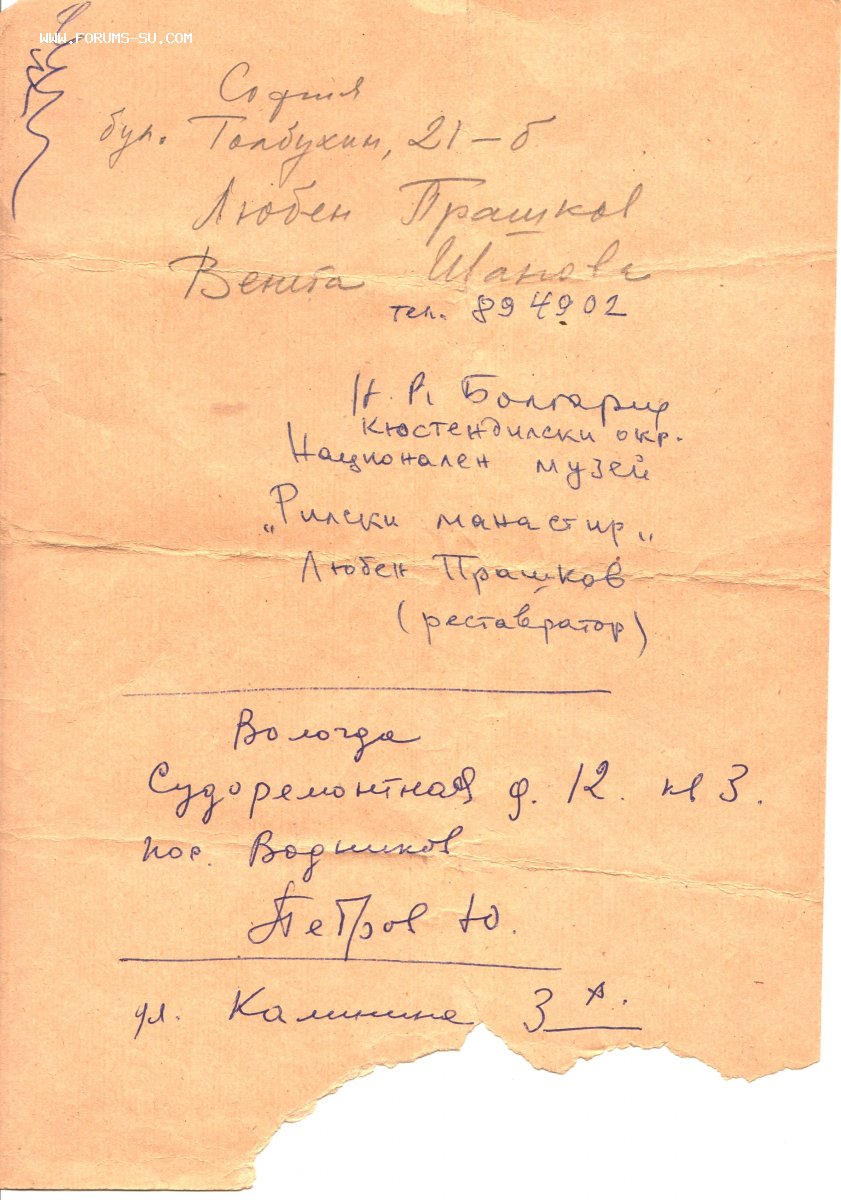 WWW.FORUMS-SU.COM
София
бул. Толбухин, 21-б
Любен Прашков
Венета
тел. 894902
Н. Р. Болгария
Кюстендилски окр.
Национален музей
„Рилски манастир„
Любен Прашков
(реставратор)
Вологда
Судоремонтная д. 12. кв 3.
пос. Водников
Петров Ю.
ул. Калинина 3